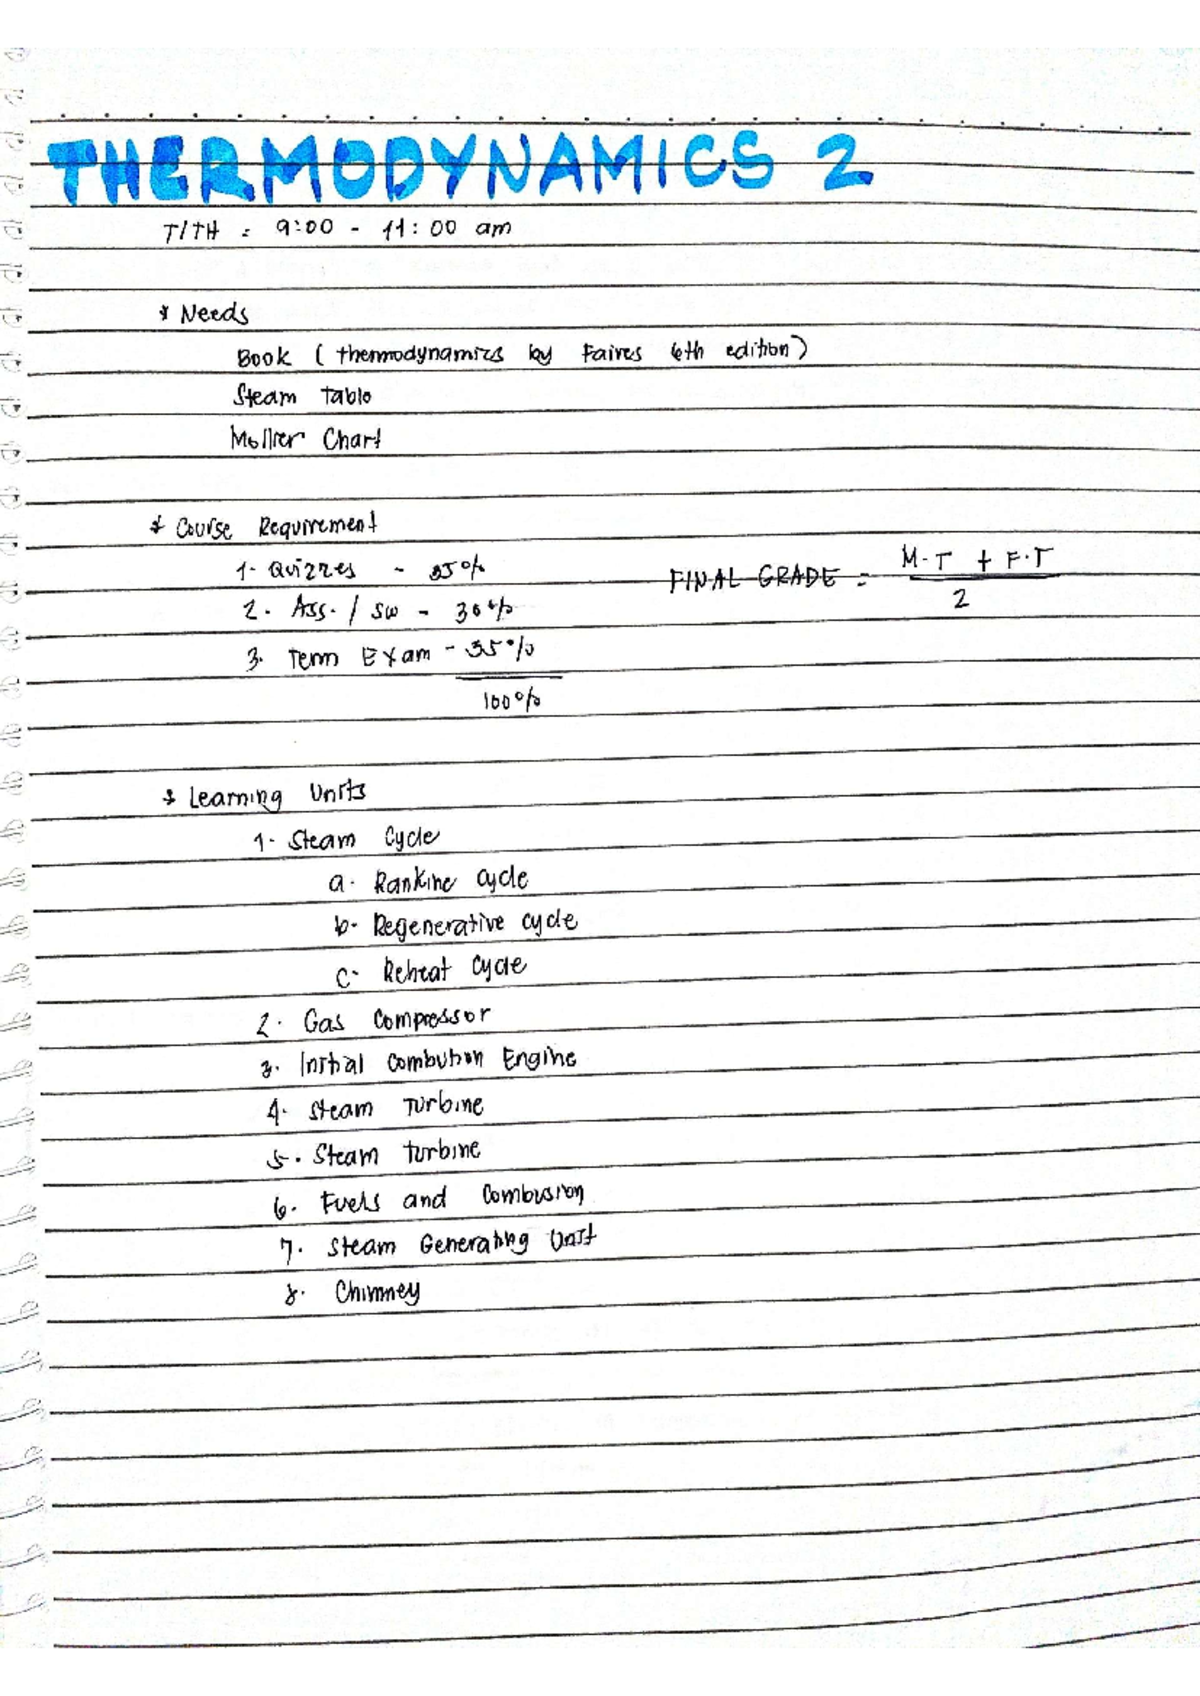 THERMODYNAMICS 2
T/TH : 9:00 - 11:00 am
* Needs
Book (thermodynamics by Faires 6th edition)
Steam Table
Mollier Chart
* Course Requirement
1. Quizzes - 35%
2. Ass. / SW - 30%
3. Term Exam - 35%
100%
FINAL GRADE = M.T + F.T
2
* Learning Units
1. Steam Cycle
a. Rankine cycle
b. Regenerative cycle
c. Reheat Cycle
2. Gas Compressor
3. Initial Combution Engine
4. Steam Turbine
5. Steam turbine
6. Fuels and Combusion
7. Steam Generating Unit
8. Chimney